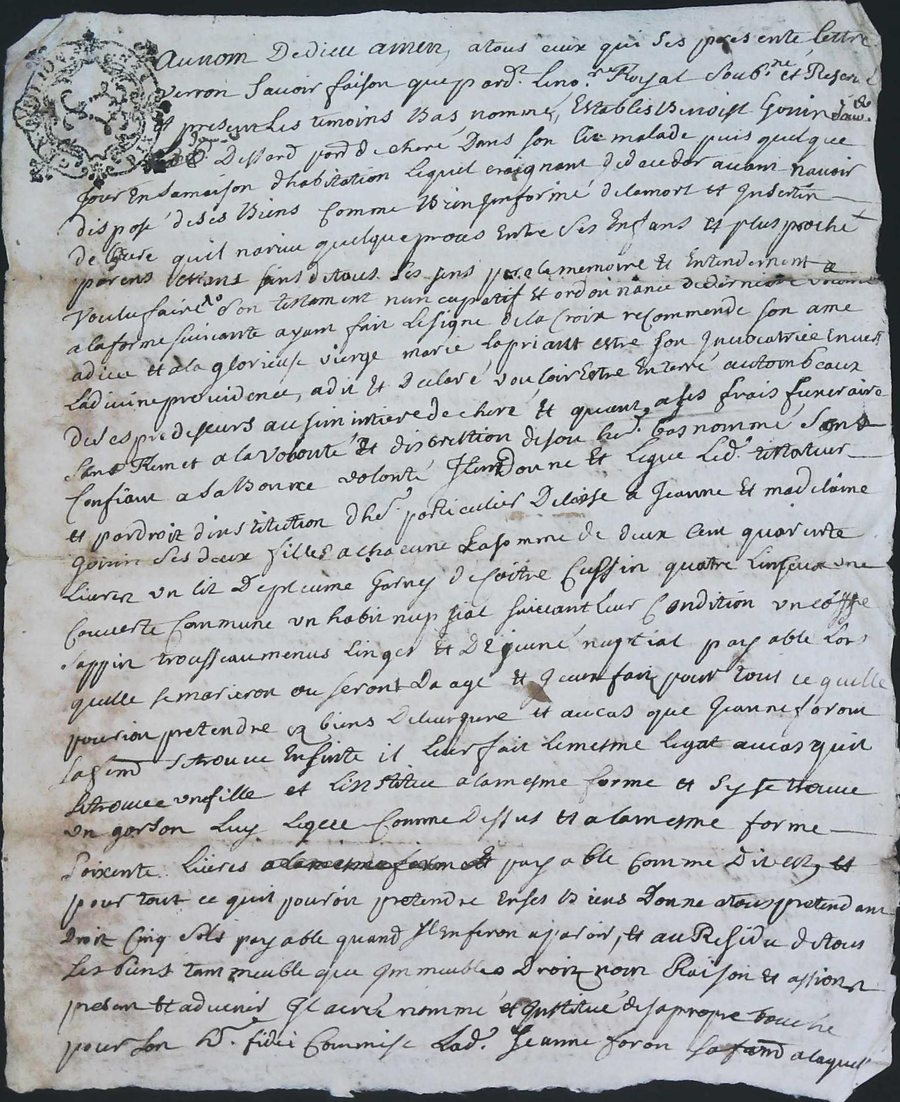 Au nom De dieu amen, a tous ceux que ses presente lettre
verron Savoir faison que pard.t le no.re Royal Soub.ne et Reserve
et present Les temoins Bas nommé, Establis Benoist Gonin
Dessard pard.e chere Dans son lit malade puis quelque
Jour En sa maison dhabitation Lequel craignant de deceder avant navoir
disposé de ses Biens Comme Bien Informé de la mort et Insertin
de lheure quil narive quelque proces Entre Ses Enfans et plus proche
parens Estans sains de tous Ses sens par la memoire Et Entendement a
Voulu faire son testament nuncupatif Et ordonnance de derniere volonté
a la forme suivante ayant fait Le signe de la Croix recommende son ame
a dieu et a la glorieuse vierge marie La priant estre son Invocatrice Envers
La divine providence, a dit Et Declaré vouloir Estre Enterré au tombeaux
de ses predeseurs au simintiere de chere Et quant a ses frais funeraire
sans Remet a la volonté Et discrettion de sou he.r bas nommé Sans
Confiant a sa Bonne volonté Item Donne Et Legue Led.t testateur
et par droit dinstitution dhe.r particulier Delaise a Jeanne Et madelaine
Gonin Ses deux filles a chacune La somme de deux Cent quarente
Livres un lit De plume Garny de Coitre Cussin quatre Linseux une
Couverte Commune un habit nupsial suivant leur Condition un Coffre
sappin trousseau menus Linges Et Dejeuné nuptial payable Lors
quelle se marieron ou seront Da age Et Ce en fait pour tout ce quelle
pourion pretendre Es biens Et au cas que Jeanne foron
sa fem.e se trouve Ensinte il Leur fait Le mesme Legat au cas quil
se trouve une fille et Linstitue a la mesme forme et sy se trouve
un gorson Luy Legue Comme Dessus et a la mesme forme
soixente Livres a la mesme forme Et payable Comme Divers, et
pour tout ce quil pouroit pretendre En ses Biens Donne a tous pretendans
Droit Cinq Sols payable quand Il En feron aparoir, et au Residu de tous
Les biens tant meuble que Immeubles Droit nom Raison Et assions
present Et advenir Il a nommé et Institué de sa propre bouche
pour son he.r fidei Commise Lad.e Jeanne foron sa fame a laquel